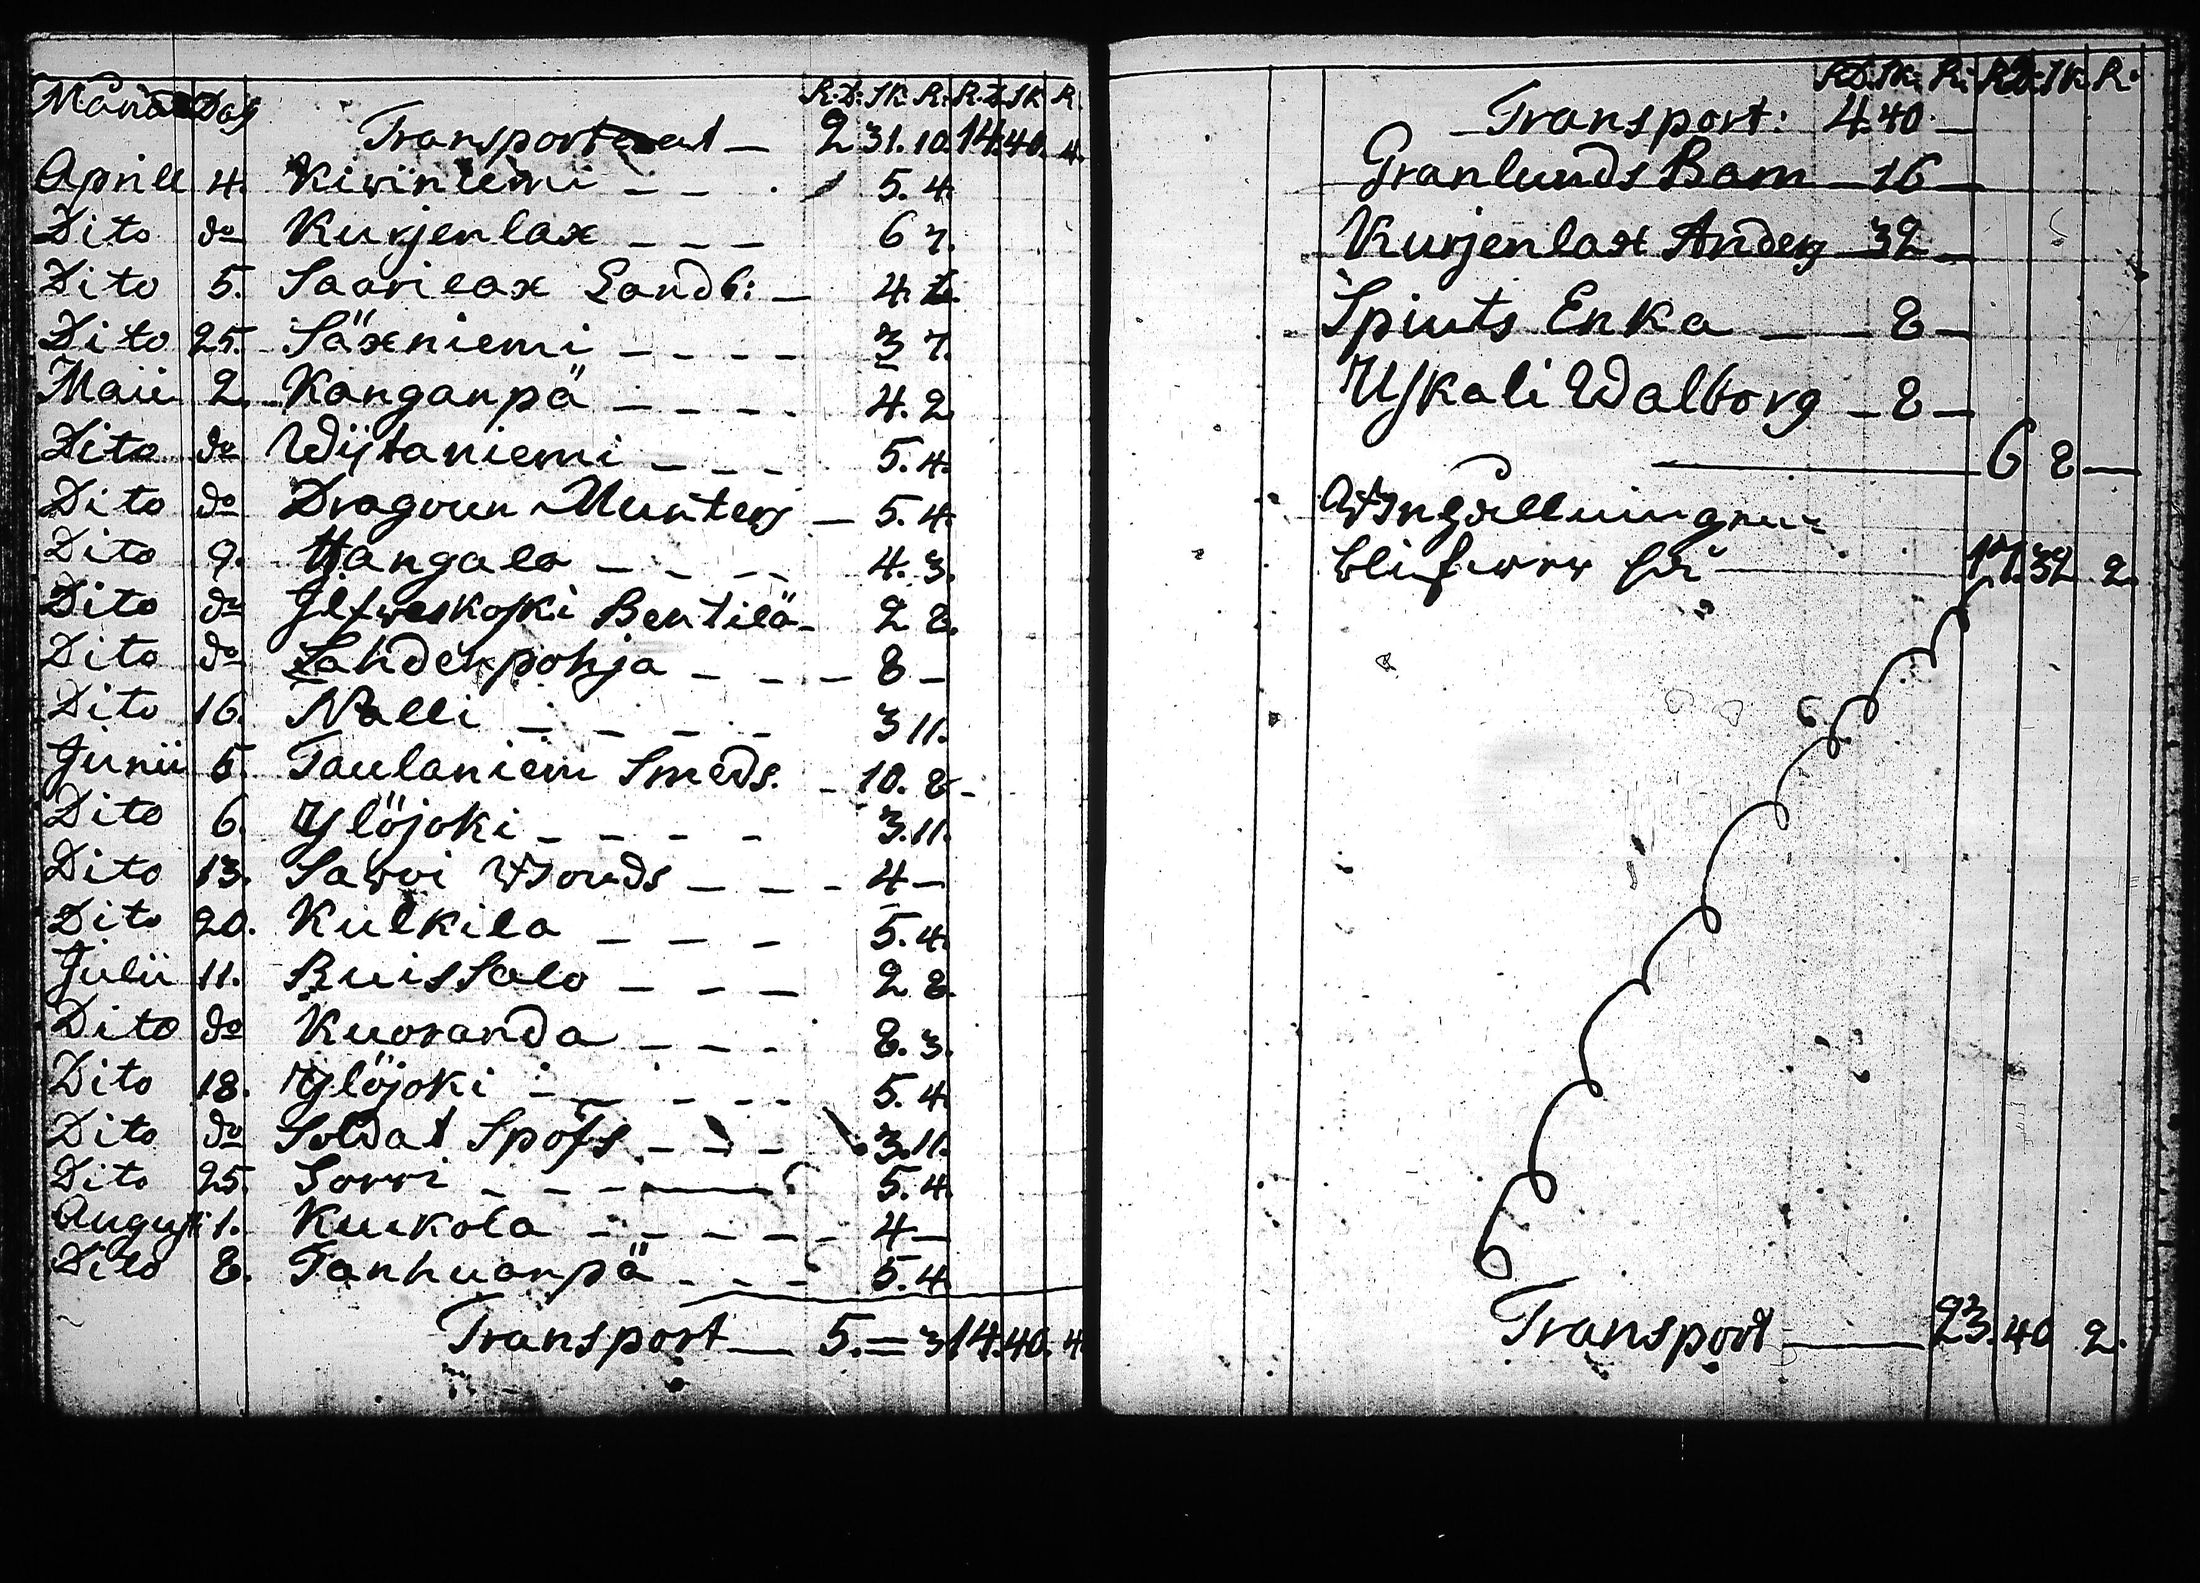 Månad Dag R.D: SK: R: R.D SK R
Transporterat — 2 31. 10. 14. 40. 4.
Aprill 4. Kirriniemi — — 5. 4.
Dito do Kurjenlax — — — 6 7.
Dito 5. Saarilax Landb: — 4.
Dito 25. Säxniemi — — — — 3 7.
Maii 2. Kanganpä — — — — 4. 2
Dito do Wijtaniemi — — — 5. 4.
Dito do Dragoun Munters — 5. 4.
Dito 9. Hangala — — — — 4. 3.
Dito do Ilfweskoski Bentilä — 2 8.
Dito do Lahdenpohja — — — 8 —
Dito 16. Nalli — — — — 3 11.
Junii 5. Taulaniem Smeds. — 10. 8 —
Dito 6. Ylöjoki — — — — 3. 11.
Dito 13. Sarvi — — — 4 —
Dito 20. Kulkila — — — 5. 4.
Julii 11. Ruissalo — — — 2 8.
Dito do Kuoranda — — — 8. 3.
Dito 18. Ylöjoki — — — — 5. 4
Dito do Soldat Spofs — — — 3. 11.
Dito 25. Sorri — — — 5. 4.
Augusti 1. Kuikola — — — — — 4 —
Dito 8. Tanhuanpä — — — 5. 4
Transport — 5. = 3 14. 40. 4
R.D. SK: R: R.D: SK R.
Transport: 4. 40 —
Granlunds Barn — 16 —
Kurjenlax Anders 32 —
Spiuts Enka — — 8 —
Uskali Walborg — 8 —
6 8 —
32 2.
Transport — 23. 40 2.